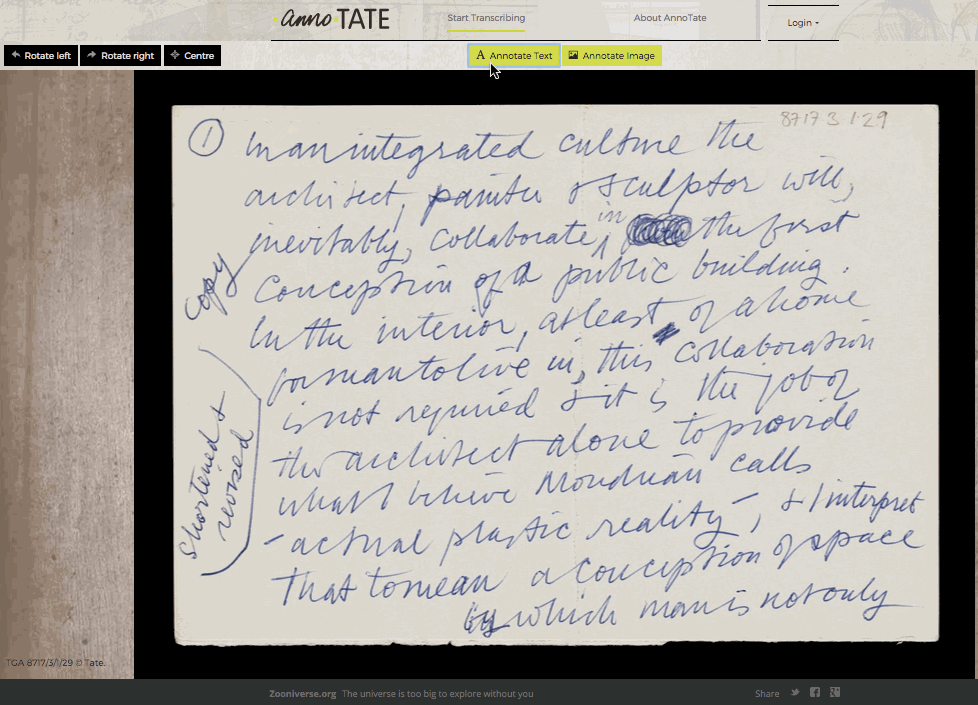 anno TATE
Start Transcribing
About AnnoTate
Login
Rotate left
Rotate right
Centre
A Annotate Text
Annotate Image
8717 3 1.29
① In an integrated culture the
architect, painter & sculptor will,
inevitably, collaborate, in the first
Conception of a public building.
In the interior, at least, of a home
for man to live in, this collaboration
is not required & it is the job of
the architect alone to provide
what I believe Mondrian calls
-actual plastic reality-, & I interpret
That to mean a conception of space
by which man is not only
Copy
Shortened &
revised
TGA 8717/3/1/29 © Tate.
Zooniverse.org The universe is too big to explore without you
Share